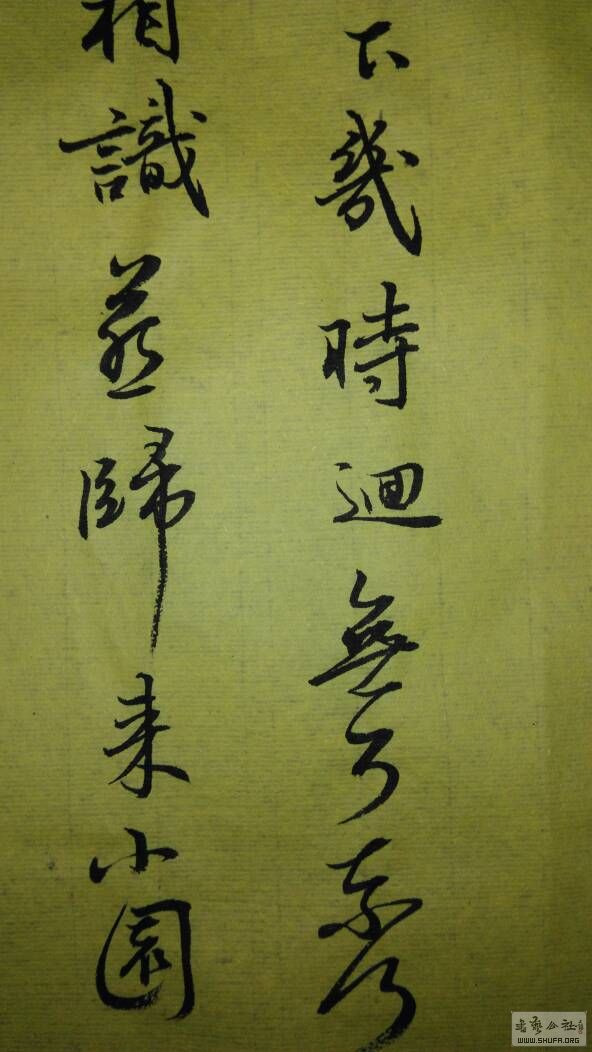 下幾時迴無可奈何
相識燕歸来小園
書藝公社
WWW.SHUFA.ORG